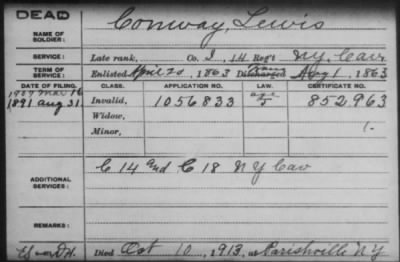 DEAD
NAME OF SOLDIER: Conway, Lewis
SERVICE: Late rank, Co. I, 14 Reg't N.Y. Cav
TERM OF SERVICE: Enlisted April 20, 1863 Discharged Aug 1, 1863
DATE OF FILING. CLASS. APPLICATION NO. LAW. CERTIFICATE NO.
Mar 16
1891 Aug 31. Invalid, 1056833 852963
Widow,
Minor,
ADDITIONAL SERVICES: C 14 and C 18 N Y Cav
REMARKS:
Died Oct 10, 1913, at Parishville N Y